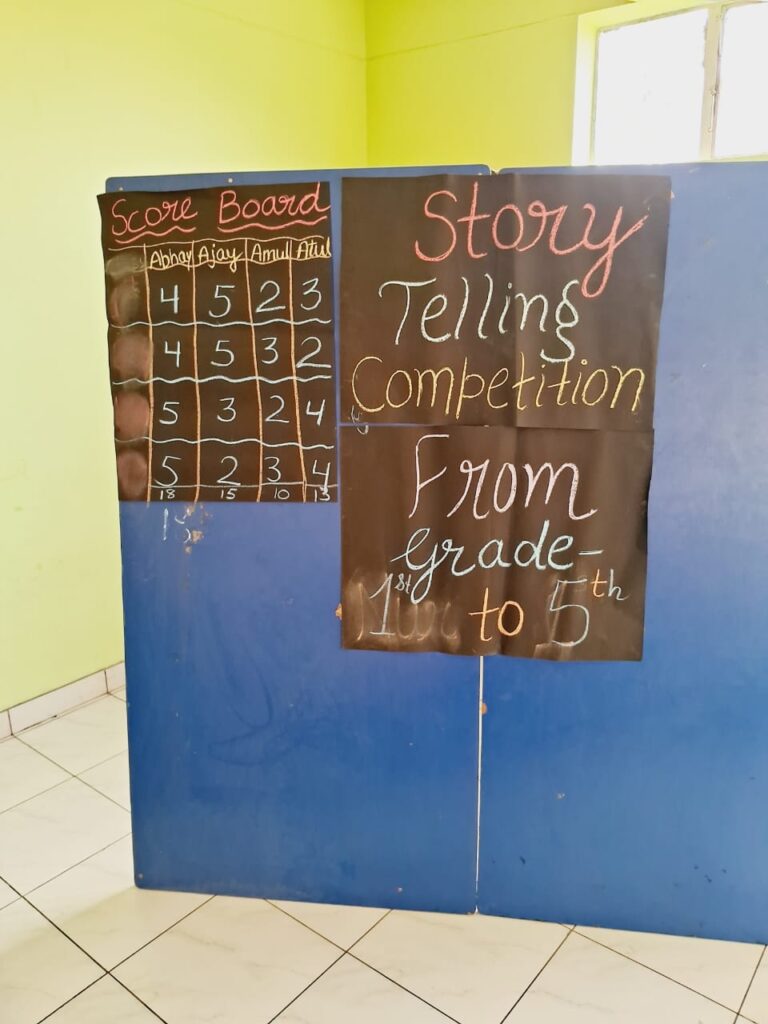 Score Board
Abhay Ajay Amul Atul
4 5 2 3
4 5 3 2
5 3 2 4
5 2 3 4
18 15 10 13
15
Story
Telling
Competition
From
Grade-
1st to 5th